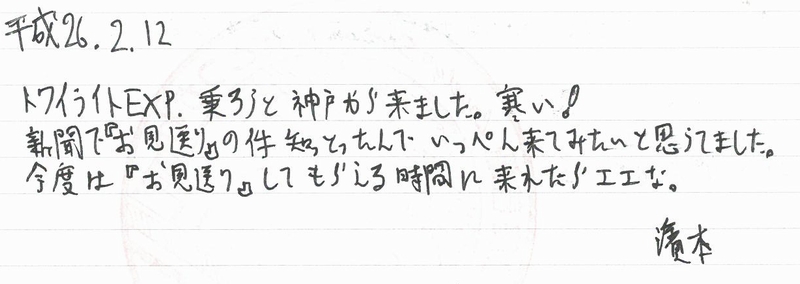 平成26.2.12
トワイライトEXP.乗ろうと神戸から来ました。寒い!
新聞で『お見送り』の件知っとったんで いっぺん来てみたいと思うてました。
今度は『お見送り』してもらえる時間に来れたらエエな。
濱本